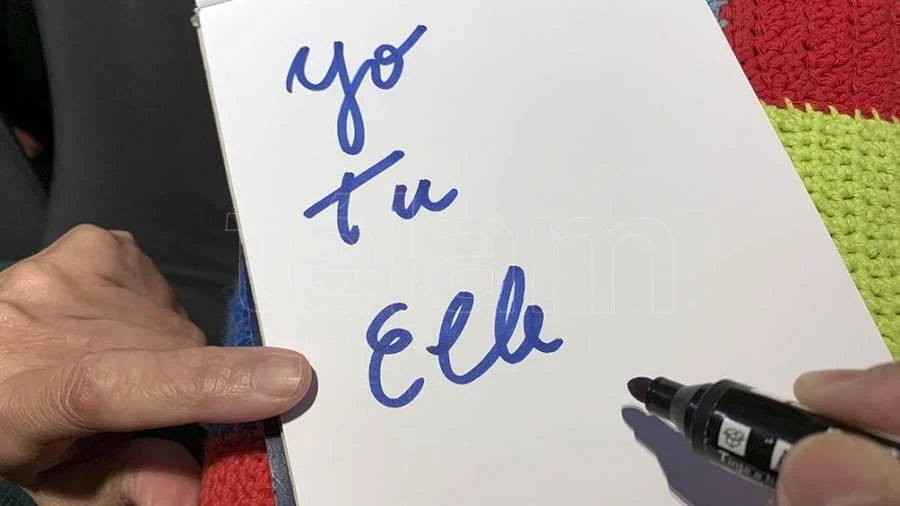 yo
tu
Elle
télam